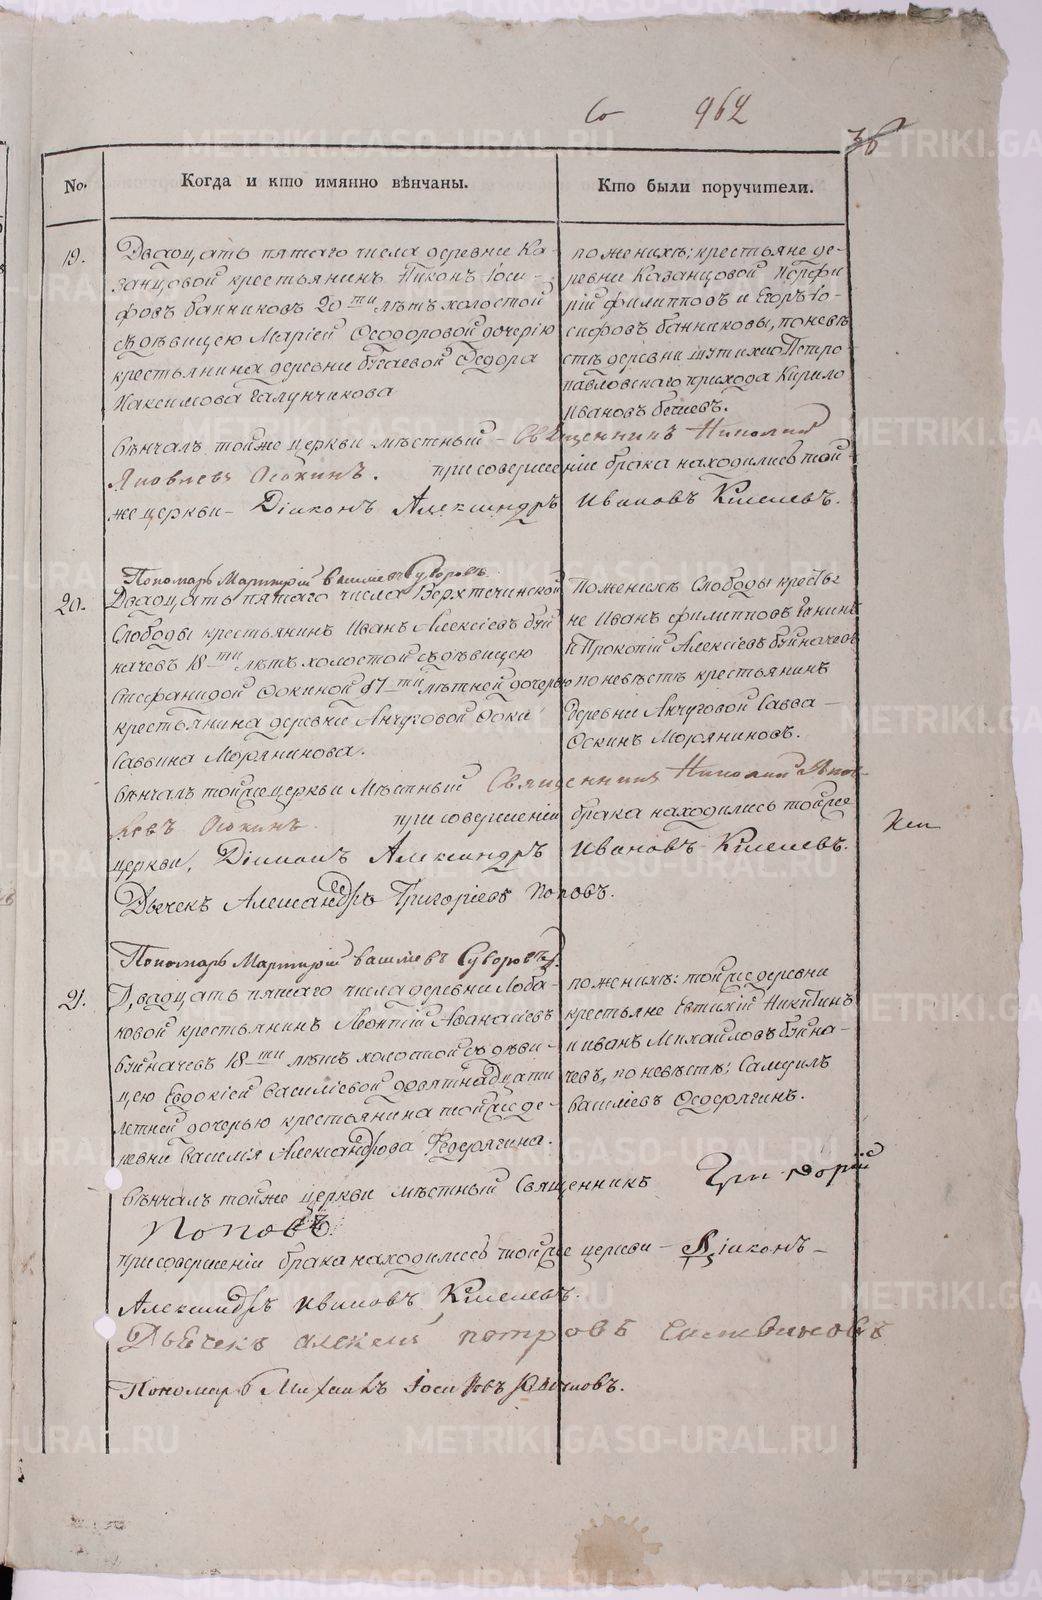 962
36
No. Когда и кто имянно вѣнчаны. Кто были поручители.
19.
Двадцать пятаго числа деревни Ка-
занцовой крестьянинъ Никонъ Іоси-
фовъ банниковъ 20ти лѣтъ холостой
съ дѣвицею Маріей Ѳеодоровой дочерію
крестьянина деревни бугаевой Ѳедора
Максимова Галунчикова
по женихѣ; крестьяне де-
ревни Казанцовой Порфи
рій филипповъ и Егоръ Іо-
сифовъ банниковы, по невѣ
стѣ деревни шутихи Петро
павловскаго прихода Кирило
Ивановъ
вѣнчалъ тойже церкви мѣстный - Священникъ Николай
Яковлевъ Осокинъ. при совершеніи брака находились той
же церкви - Діаконъ Александръ Ивановъ Киселевъ.
Пономарь Мартирій васильевъ Суворовъ
20.
Двадцать пятаго числа Верхтечинской
Слободы крестьянинъ Иванъ Алексіевъ буй
начевъ 18ти лѣтъ холостой съ дѣвицею
Стефанидой Фокиной 17ти лѣтней дочерью
крестьянина деревни Анчуговой Фоки
Саввина Морянинова.
По женихѣ Слободы крестья
не Иванъ филипповъ
и Прокопій Алексіевъ буйначевъ
по невѣстѣ крестьянинъ
деревни Анчуговой Савва -
Фокинъ Моряниновъ.
вѣнчалъ тойже церкви Мѣстный Священникъ Николай Яков-
левъ Осокинъ. при совершеніи брака находились тойже
церкви, Діаконъ Александръ Ивановъ Киселевъ.
Дьячекъ Александръ Григоріевъ Поповъ.
Пономарь Мартирій васильевъ Суворовъ.
21.
Двадцать пятаго числа деревни Лоба-
новой крестьянинъ Леонтій Аѳанасіевъ
буйначевъ 18ти лѣтъ холостой съ дѣви-
цею Евдокіей Василіевой девятнадцати
летней дочерью крестьянина тойже де-
ревни Василія Александрова Федерягина.
по женихѣ: тойже деревни
крестьяне Евтихій Никитинъ
и иванъ Михайловъ буйна-
чевъ, по невѣстѣ; Самуилъ
василіевъ Федерягинъ.
вѣнчалъ тойже церкви мѣстный Священникъ Григорій
Поповъ.
при совершеніи брака находились тойже церкви - Діаконъ -
Александръ Ивановъ Киселевъ.
Дьячекъ алексей петровъ
Пономарь Михаилъ Іосифовъ
METRIKI.GASO-URAL.RU